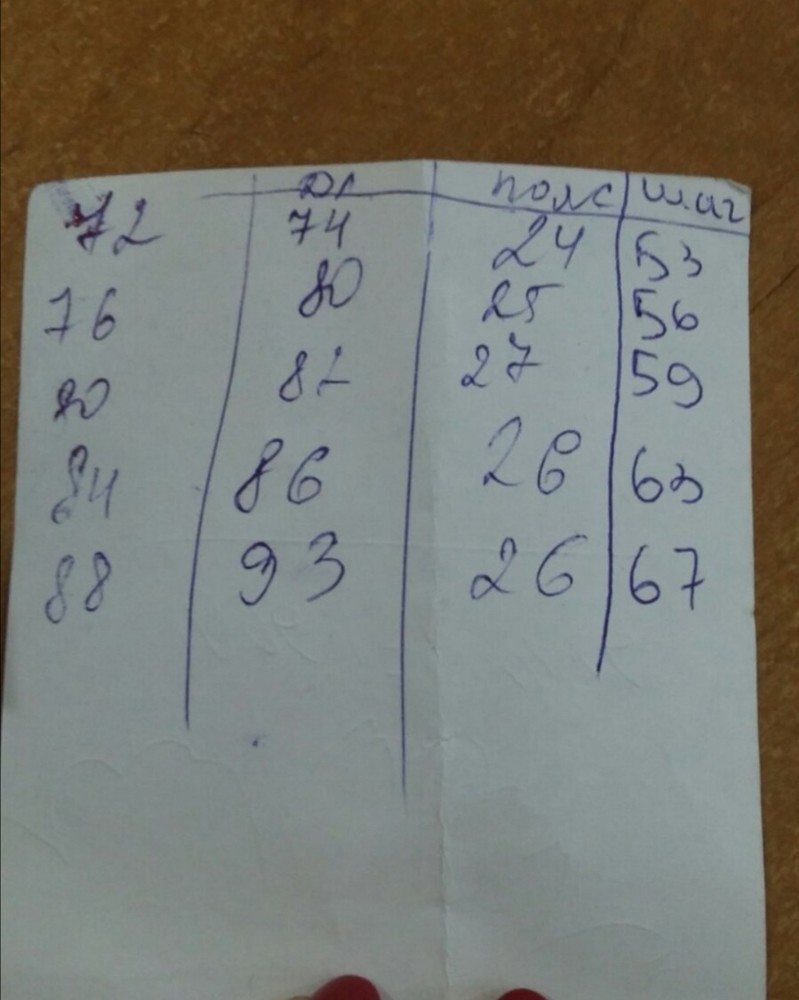 дл пояс шаг
72 74 24 53
76 80 25 56
80 82 27 59
84 86 26 63
88 93 26 67